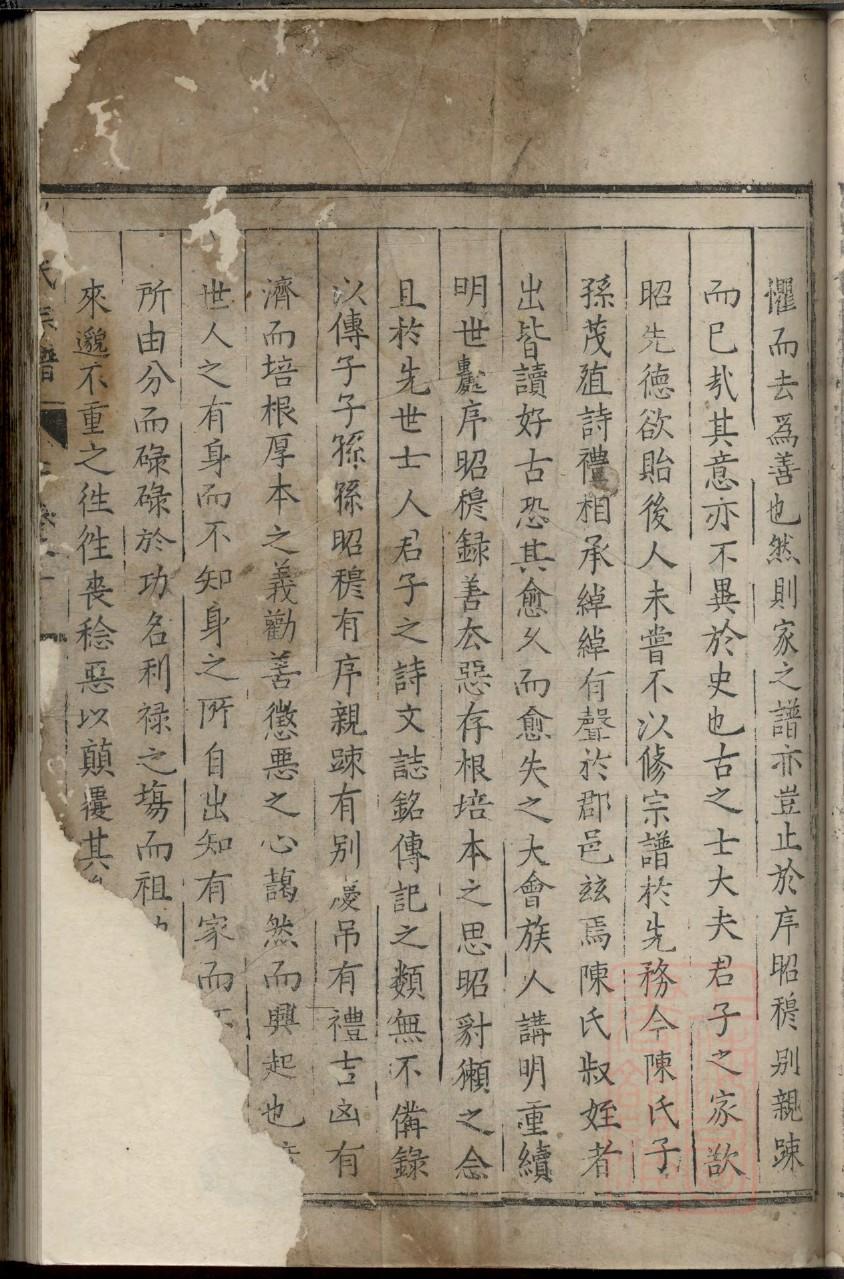 懼而去爲善也然則家之譜亦豈止於序昭穆别親踈
而已㢤其意亦不異於史也古之士大夫君子之家欲
昭先德欲貽後人未嘗不以修宗譜於先務今陳氏子
孫茂殖詩禮相承綽綽有聲於郡邑兹焉陳氏叔姪者
出皆讀好古恐其愈久而愈失之大會族人講明重續
明世序昭穆録善去惡存根培本之思昭豺獺之念
且於先世士人君子之詩文誌銘傳記之類無不備録
以傳子子孫孫昭穆有序親踈有别慶吊有禮吉凶有
濟而培根厚本之義勸善懲悪之心藹然而興起也
世人之有身而不知身之所自出知有家而不
所由分而碌碌於功名利禄之塲而祖
來邈不重之徃徃喪稔惡以顛覆其
氏宗譜